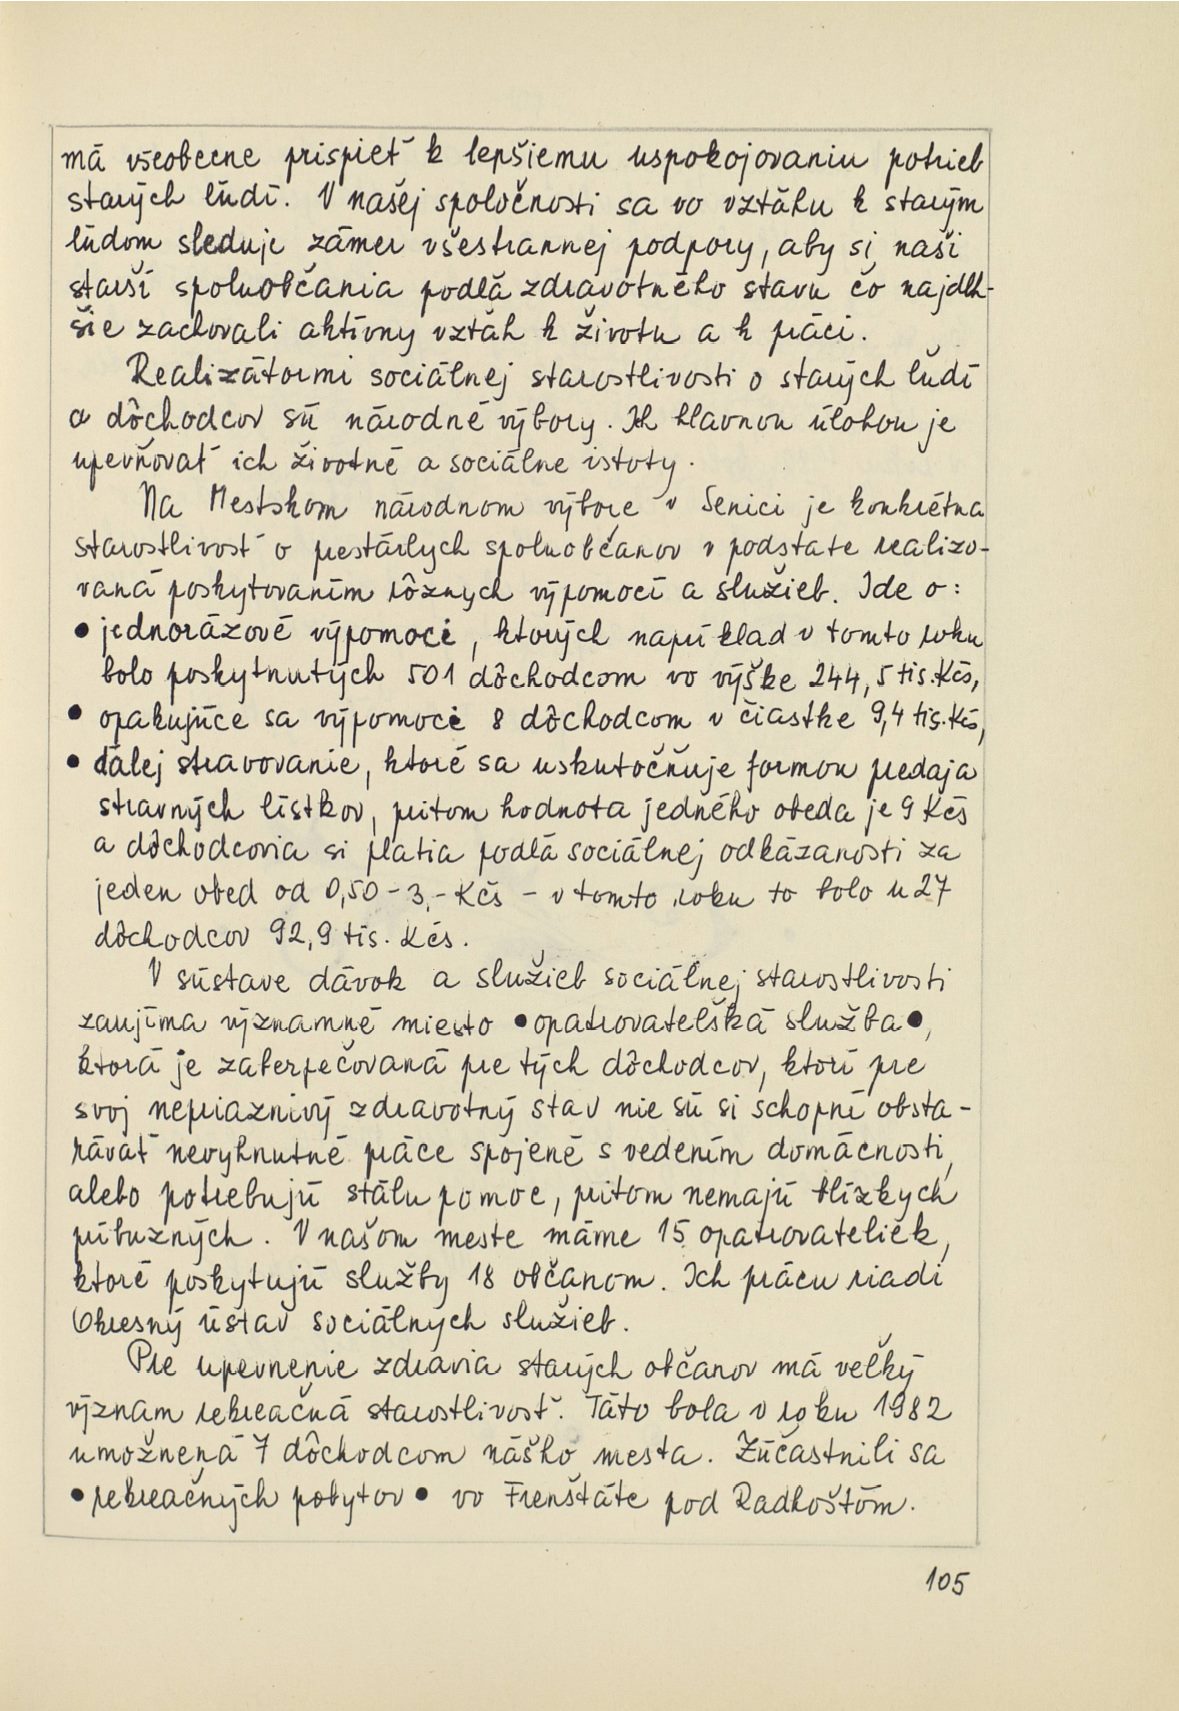 má všeobecne prispieť k lepšiemu uspokojovaniu potrieb
starých ľudí. V našej spoločnosti sa vo vzťahu k starým
ľuďom sleduje zámer všestrannej podpory, aby si naši
starší spoluobčania podľa zdravotného stavu čo najdlh-
šie zachovali aktívny vzťah k životu a k práci.
Realizátormi sociálnej starostlivosti o starých ľudí
a dôchodcov sú národné výbory. Ich hlavnou úlohou je
upevňovať ich životné a sociálne istoty.
Na Mestskom národnom výbore v Senici je konkrétna
starostlivosť o prestárlych spoluobčanov v podstate realizo-
vaná poskytovaním rôznych výpomocí a služieb. Ide o:
• jednorázové výpomoci, ktorých napríklad v tomto roku
bolo poskytnutých 501 dôchodcom vo výške 244,5 tis. Kčs,
• opakujúce sa výpomoci 8 dôchodcom v čiastke 9,4 tis. Kčs,
• ďalej stravovanie, ktoré sa uskutočňuje formou predaja
stravných lístkov, pritom hodnota jedného obeda je 9 Kčs
a dôchodcovia si platia podľa sociálnej odkázanosti za
jeden obed od 0,50 - 3,- Kčs - v tomto roku to bolo u 27
dôchodcov 92,9 tis. Kčs.
V sústave dávok a služieb sociálnej starostlivosti
zaujíma významné miesto • opatrovateľská služba •,
ktorá je zabezpečovaná pre tých dôchodcov, ktorí pre
svoj nepriaznivý zdravotný stav nie sú si schopní obsta-
rávať nevyhnutné práce spojené s vedením domácnosti,
alebo potrebujú stálu pomoc, pritom nemajú blízkych
príbuzných. V našom meste máme 15 opatrovateliek,
ktoré poskytujú služby 18 občanom. Ich prácu riadi
Okresný ústav sociálnych služieb.
Pre upevnenie zdravia starých občanov má veľký
význam rekreačná starostlivosť. Táto bola v roku 1982
umožnená 7 dôchodcom nášho mesta. Zúčastnili sa
• rekreačných pobytov • vo Frenštáte pod Radhoštóm.
105